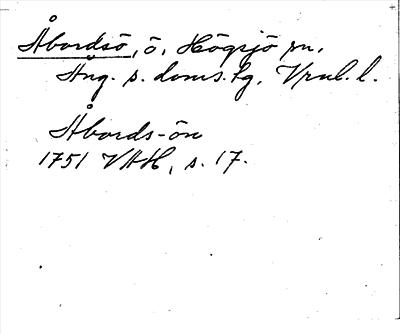 Åbordsö, ö, Högsjö sn,
Ång. s. doms.tg, Vrnl. l.
Åbords-ön
1751 VAH, s. 17.